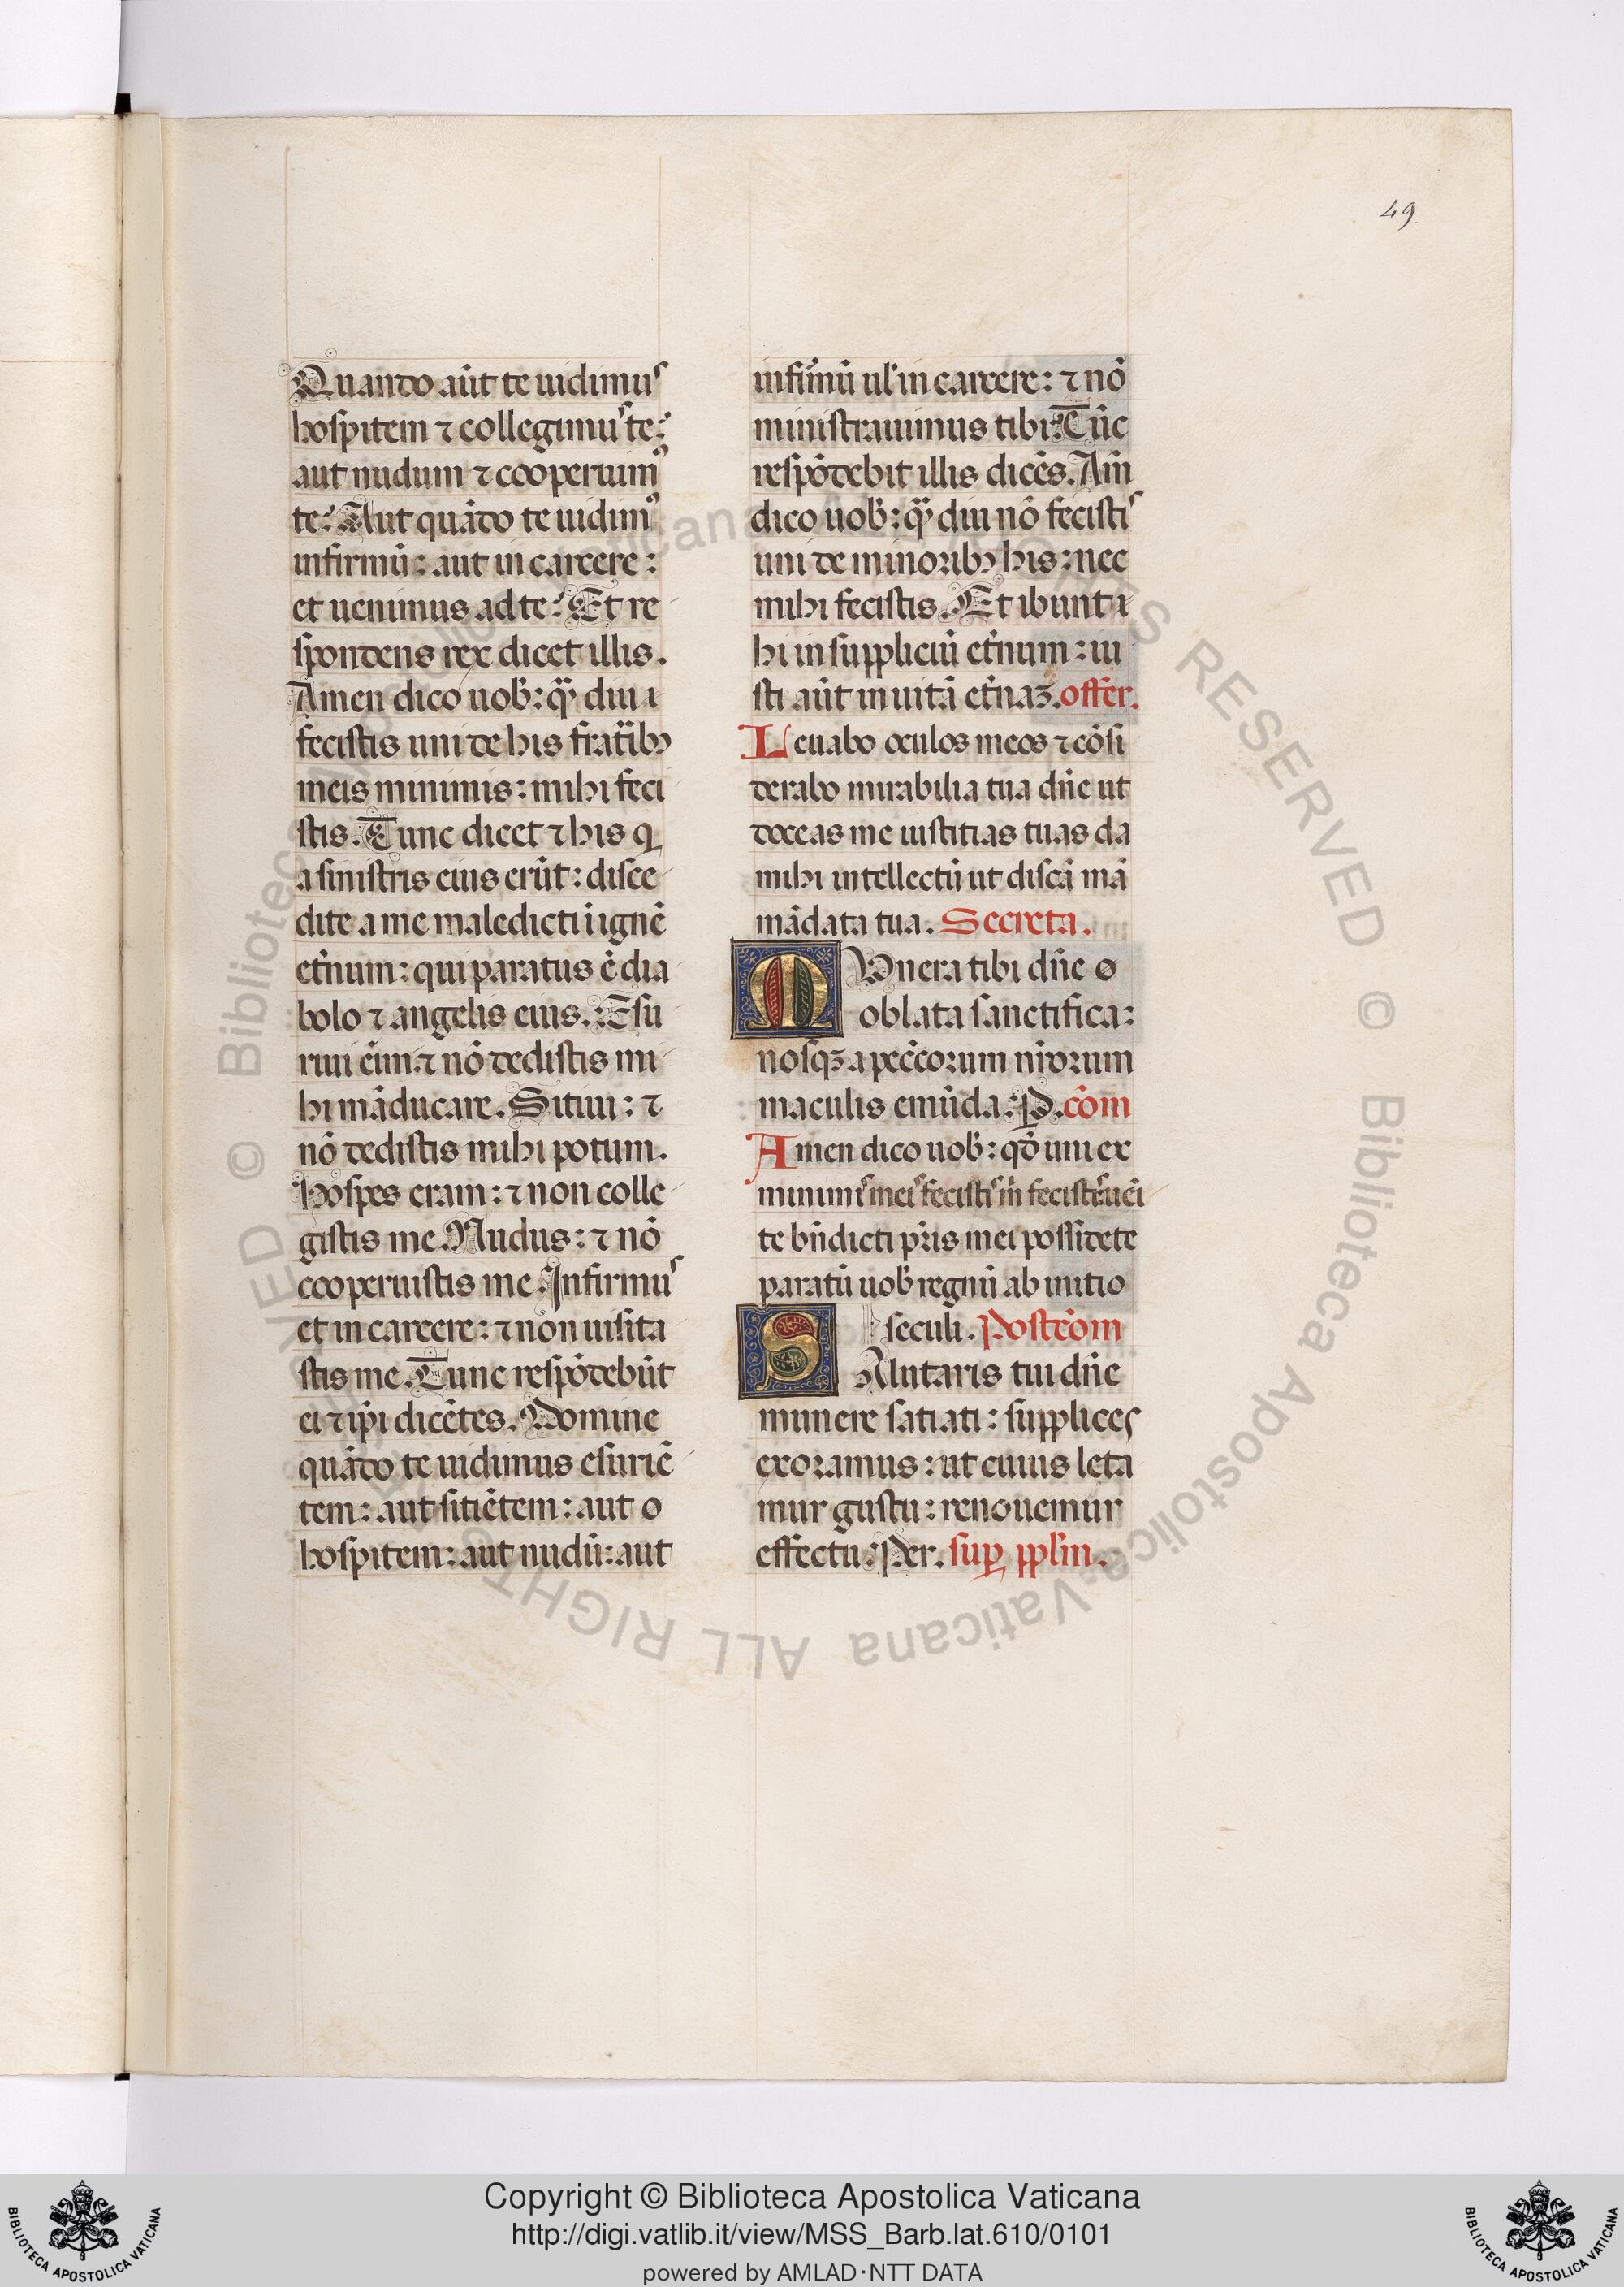 49.
Quando aūt te uidimus
hospitem ⁊ collegimus te:
aut nudum ⁊ cooperuimꝰ
te: Aut quādo te uidimꝰ
infirmū: aut in carcere:
et uenimus ad te: Et re
spondens rex dicet illis.
Amen dico uob̄: qͣdiu
fecistis uni de his fratribꝫ
meis minimis: mihi feci
stis. Tunc dicet ⁊ his q
a sinistris eius erūt: disce
dite a me maledicti ī ignē
et̄num: qui paratus ē dia
bolo ⁊ angelis eius. Esu
riui eīm ⁊ nō dedistis mi
hi māducare. Sitiui: ⁊
nō dedistis mihi potum.
Hospes eram: ⁊ non colle
gistis me. Nudus: ⁊ nō
cooperuistis me. Infirmus
et in carcere: ⁊ non uisita
stis me. Tunc respōdebūt
ei ⁊ ip̄i dicētes. Domine
quādo te uidimus esuriē
tem: aut sitiētem: aut o
hospitem: aut nudū: aut
infirmū ul̄ in carcere: ⁊ nō
ministrauimus tibi: Tūc
respōdebit illis dicēs. Am̄
dico uob̄: qͣdiu nō fecistis
uni de minoribꝫ his: nec
mihi fecistis. Et ibunt
hi in suppliciū et̄num: iu
sti aūt in uitā et̄naꝫ. offer.
Leuabo oculos meos ⁊ cōsi
derabo mirabilia tua dn̄e ut
doceas me iustitias tuas da
mihi intellectū ut discā mā
mādata tua. Secreta.
MUnera tibi dn̄e o
oblata sanctifica:
nosqꝫ a pecc̄orum nr̄orum
maculis emūda: P. cōm
Amen dico uob̄: qd̄ uni ex
minimis meis fecistis m̄ fecistis uēi
te bn̄dicti pr̄is mei possidete
paratū uob̄ regnū ab initio
seculi. Postcōm
SAlutaris tui dn̄e
munere satiati: supplices
exoramus: ut cuius leta
mur gustu: renouemur
effectu. Per. suꝑ ppl̄m.
© Biblioteca Apostolica Vaticana ALL RIGHTS RESERVED
© Biblioteca Apostolica Vaticana ALL RIGHTS RESERVED
Copyright © Biblioteca Apostolica Vaticana
http://digi.vatlib.it/view/MSS_Barb.lat.610/0101
powered by AMLAD·NTT DATA
BIBLIOTECA APOSTOLICA VATICANA
BIBLIOTECA APOSTOLICA VATICANA